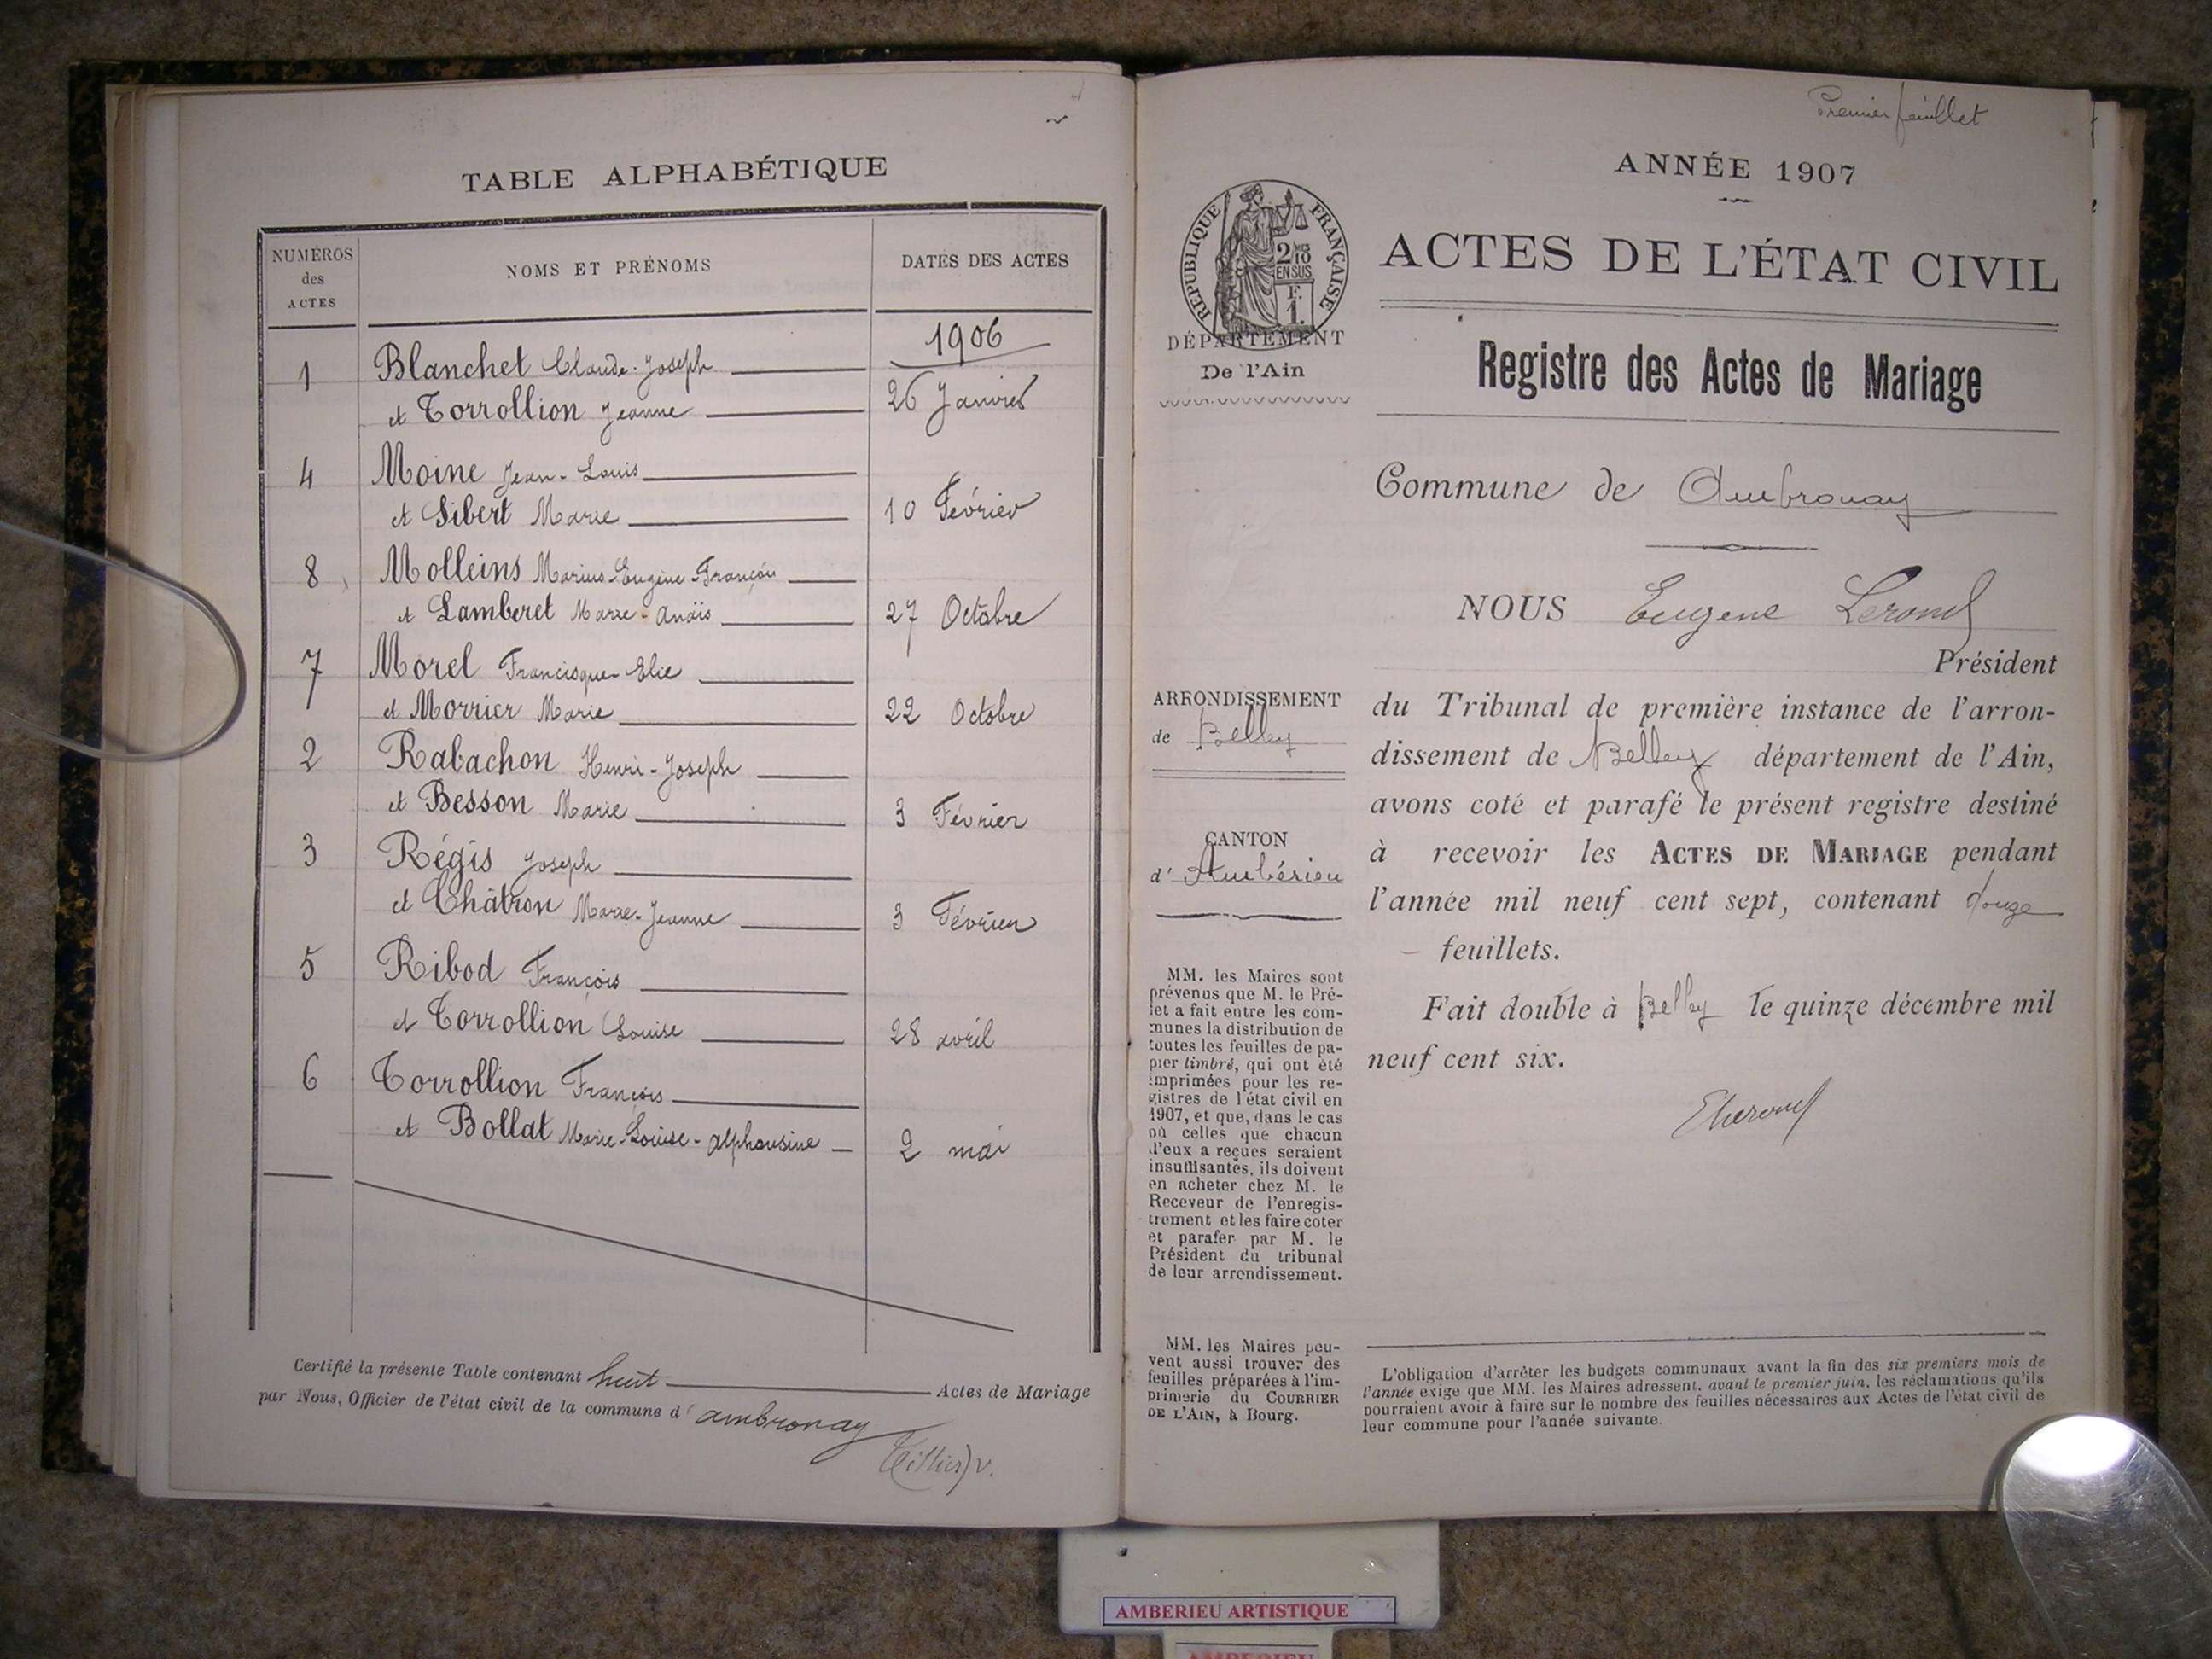 TABLE ALPHABÉTIQUE
NUMÉROS
des
ACTES
NOMS ET PRÉNOMS
DATES DES ACTES
1906
1 Blanchet Claude-Joseph
et Torrollion Jeanne 26 Janvier
4 Moine Jean-Louis
et Sibert Marie 10 Février
8 Molleins Marius-Eugène-François
et Lamberet Marie-Anaïs 27 Octobre
7 Morel Francisque-Elie
et Morrier Marie 22 Octobre
2 Rabachon Henri-Joseph
et Besson Marie 3 Février
3 Régis Joseph
et Châtron Marie-Jeanne 3 Février
5 Ribod François
et Torrollion Louise 28 avril
6 Torrollion François
et Bollat Marie-Louise-Alphonsine 2 mai
Certifié la présente Table contenant huit Actes de Mariage
par Nous, Officier de l'état civil de la commune d' ambronay
Premier feuillet
ANNÉE 1907
ACTES DE L'ÉTAT CIVIL
RÉPUBLIQUE FRANÇAISE
2/10
EN SUS
F.
1.
DÉPARTEMENT
De l'Ain
Registre des Actes de Mariage
Commune de Ambronay
NOUS Eugene
Président
du Tribunal de première instance de l'arron-
dissement de Belley département de l'Ain,
avons coté et parafé le présent registre destiné
à recevoir les ACTES DE MARIAGE pendant
l'année mil neuf cent sept, contenant douze
feuillets.
Fait double à Belley le quinze décembre mil
neuf cent six.
ARRONDISSEMENT
de Belley
CANTON
d' Ambérieu
MM. les Maires sont
prévenus que M. le Pré-
fet a fait entre les com-
munes la distribution de
toutes les feuilles de pa-
pier timbré, qui ont été
imprimées pour les re-
gistres de l'état civil en
1907, et que, dans le cas
où celles que chacun
d'eux a reçues seraient
insuffisantes, ils doivent
en acheter chez M. le
Receveur de l'enregis-
trement et les faire coter
et parafer par M. le
Président du tribunal
de leur arrondissement.
MM. les Maires peu-
vent aussi trouver des
feuilles préparées à l'im-
primerie du COURRIER
DE L'AIN, à Bourg.
L'obligation d'arrêter les budgets communaux avant la fin des six premiers mois de
l'année exige que MM. les Maires adressent, avant le premier juin, les réclamations qu'ils
pourraient avoir à faire sur le nombre des feuilles nécessaires aux Actes de l'état civil de
leur commune pour l'année suivante.
AMBERIEU ARTISTIQUE
AMBERIEU